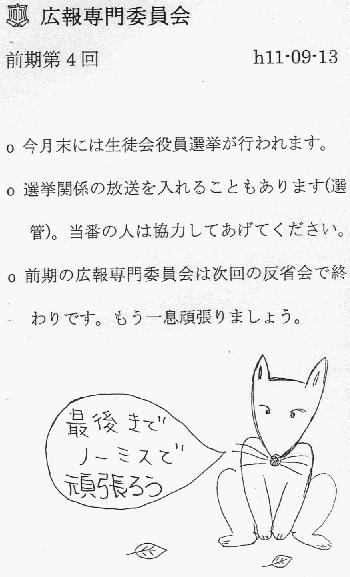 広報専門委員会
前期第4回 h11-09-13
o 今月末には生徒会役員選挙が行われます。
o 選挙関係の放送を入れることもあります(選
管)。当番の人は協力してあげてください。
o 前期の広報専門委員会は次回の反省会で終
わりです。もう一息頑張りましょう。
最後まで
ノーミスで
頑張ろう